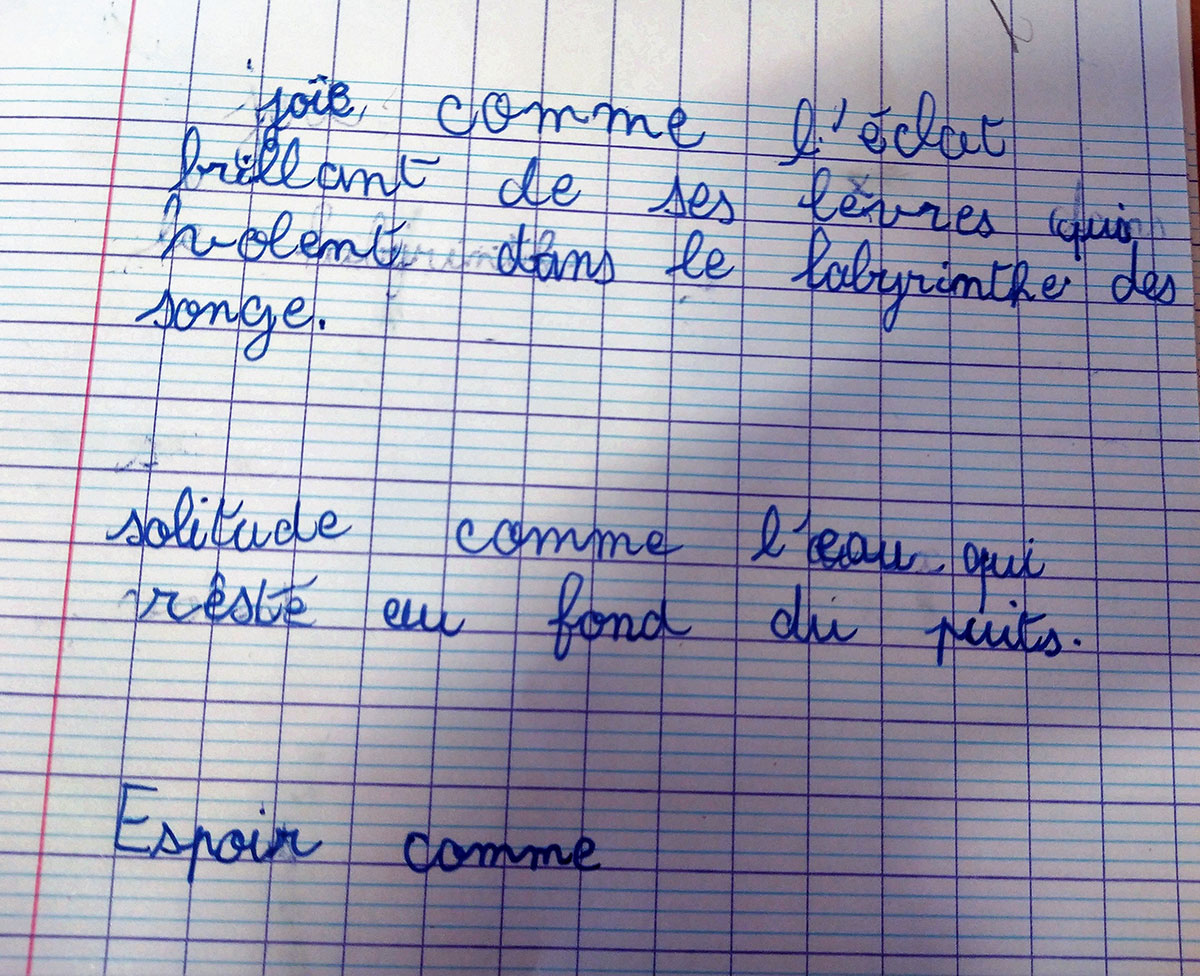 joie comme l'éclat
brillant de ses lèvres qui
volent dans le labyrinthe des
songe.
solitude comme l'eau qui
reste au fond du puits.
Espoir comme